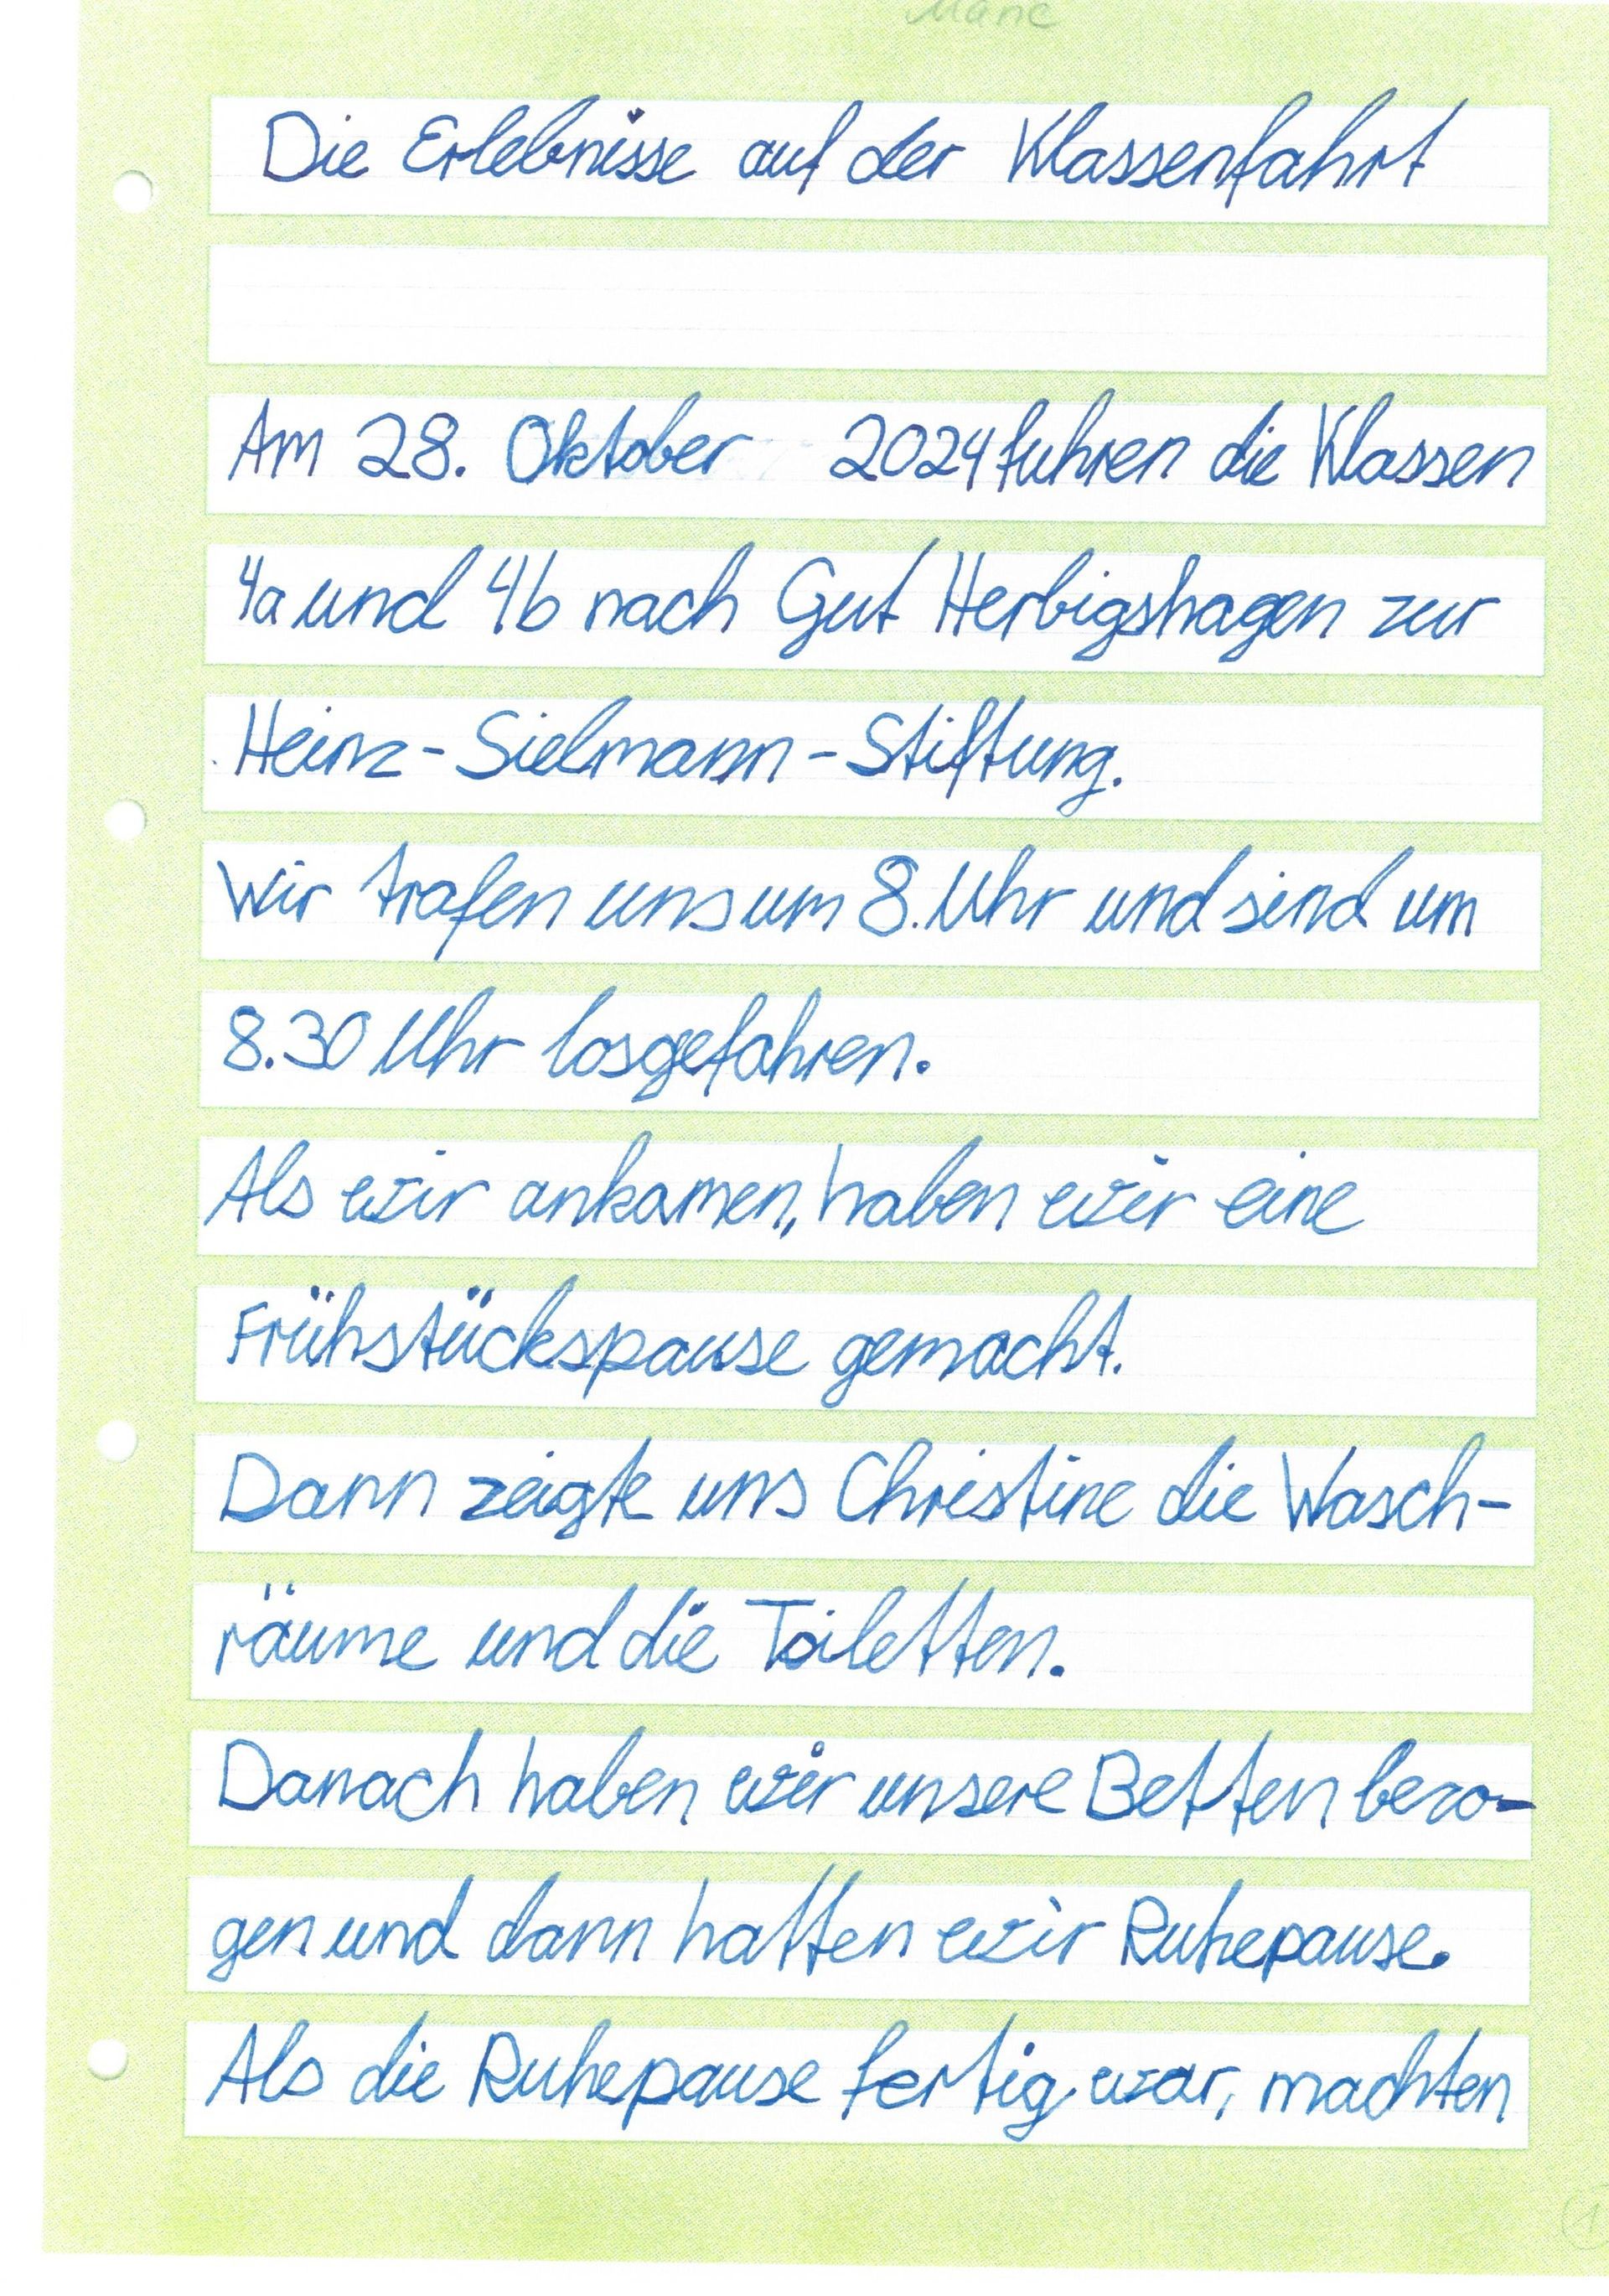 Die Erlebnisse auf der Klassenfahrt
Am 28. Oktober 2024 fuhren die Klassen
4a und 4b nach Gut Herbigshagen zur
Heinz-Sielmann-Stiftung.
Wir trafen uns um 8. Uhr und sind um
8.30 Uhr losgefahren.
Als wir ankamen, haben wir eine
Frühstückspause gemacht.
Dann zeigte uns Christine die Wasch-
räume und die Toiletten.
Danach haben wir unsere Betten bezo-
gen und dann hatten wir Ruhepause.
Als die Ruhepause fertig war, machten
1